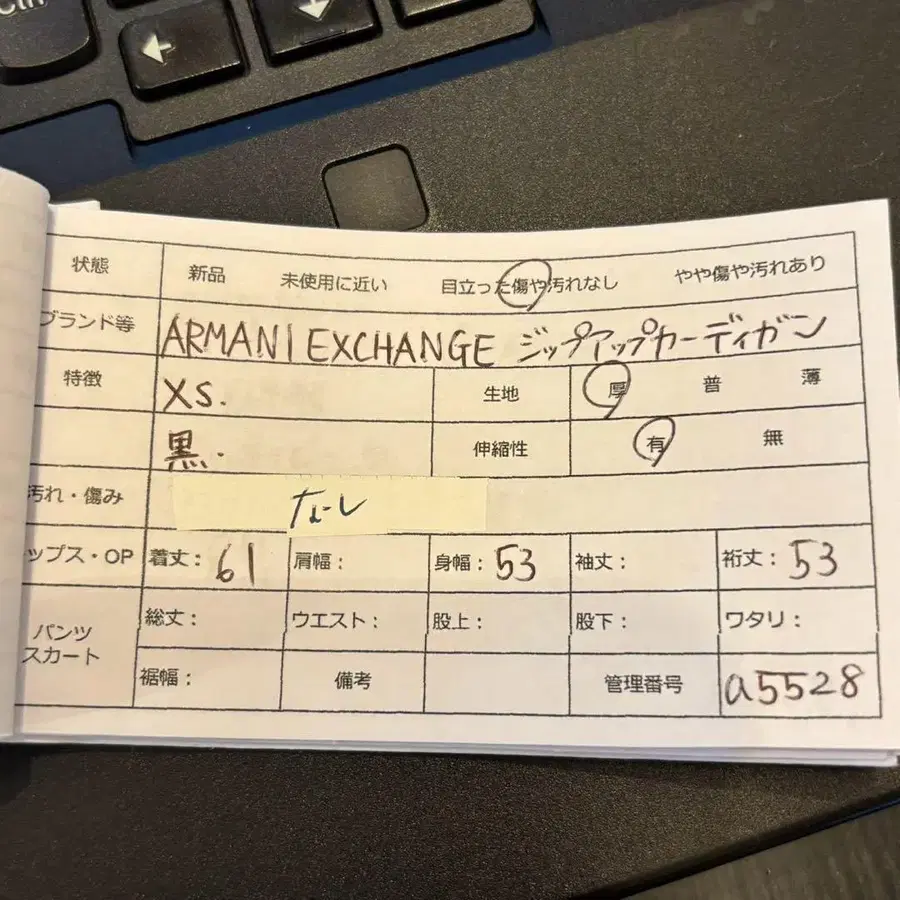 Ctrl
←
↓
状態 新品 未使用に近い 目立った傷や汚れなし やや傷や汚れあり
ブランド等 ARMANI EXCHANGE ジップアップカーディガン
特徴 XS. 生地 厚 普 薄
黒. 伸縮性 有 無
汚れ・傷み なし
ップス・OP 着丈: 61 肩幅: 身幅: 53 袖丈: 裄丈: 53
パンツ
スカート
総丈: ウエスト: 股上: 股下: ワタリ:
裾幅: 備考 管理番号 a5528